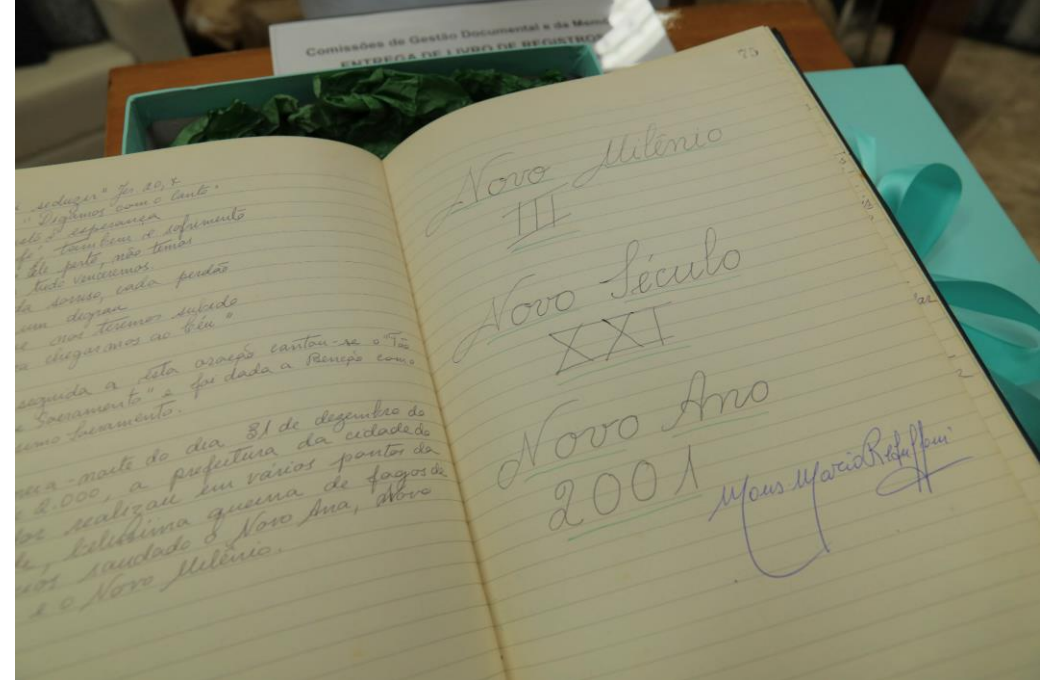 Comissões de Gestão Documental e da
ENTREGA DE LIVRO DE REGISTROS
seduzir" Jer 20, 7
" Digamos com o canto.
é esperança
também é sofrimento
Ele perto, não temos
tudo venceremos.
sorriso, cada perdão
um degrau
nos teremos subido
chegarmos ao Céu"
seguida a esta oração cantou-se o "Tão
Sacramento" e foi dada a Benção com o
Sacramento.
meia-noite do dia 31 de dezembro de
2.000, a prefeitura da cidade de
realizou em vários pontos da
belissima queima de fogos de
saudado o Novo Ano, Novo
e o Novo Milênio.
75
Novo Milênio
III
Novo Século
XXI
Novo Ano
2001
Mons Mario